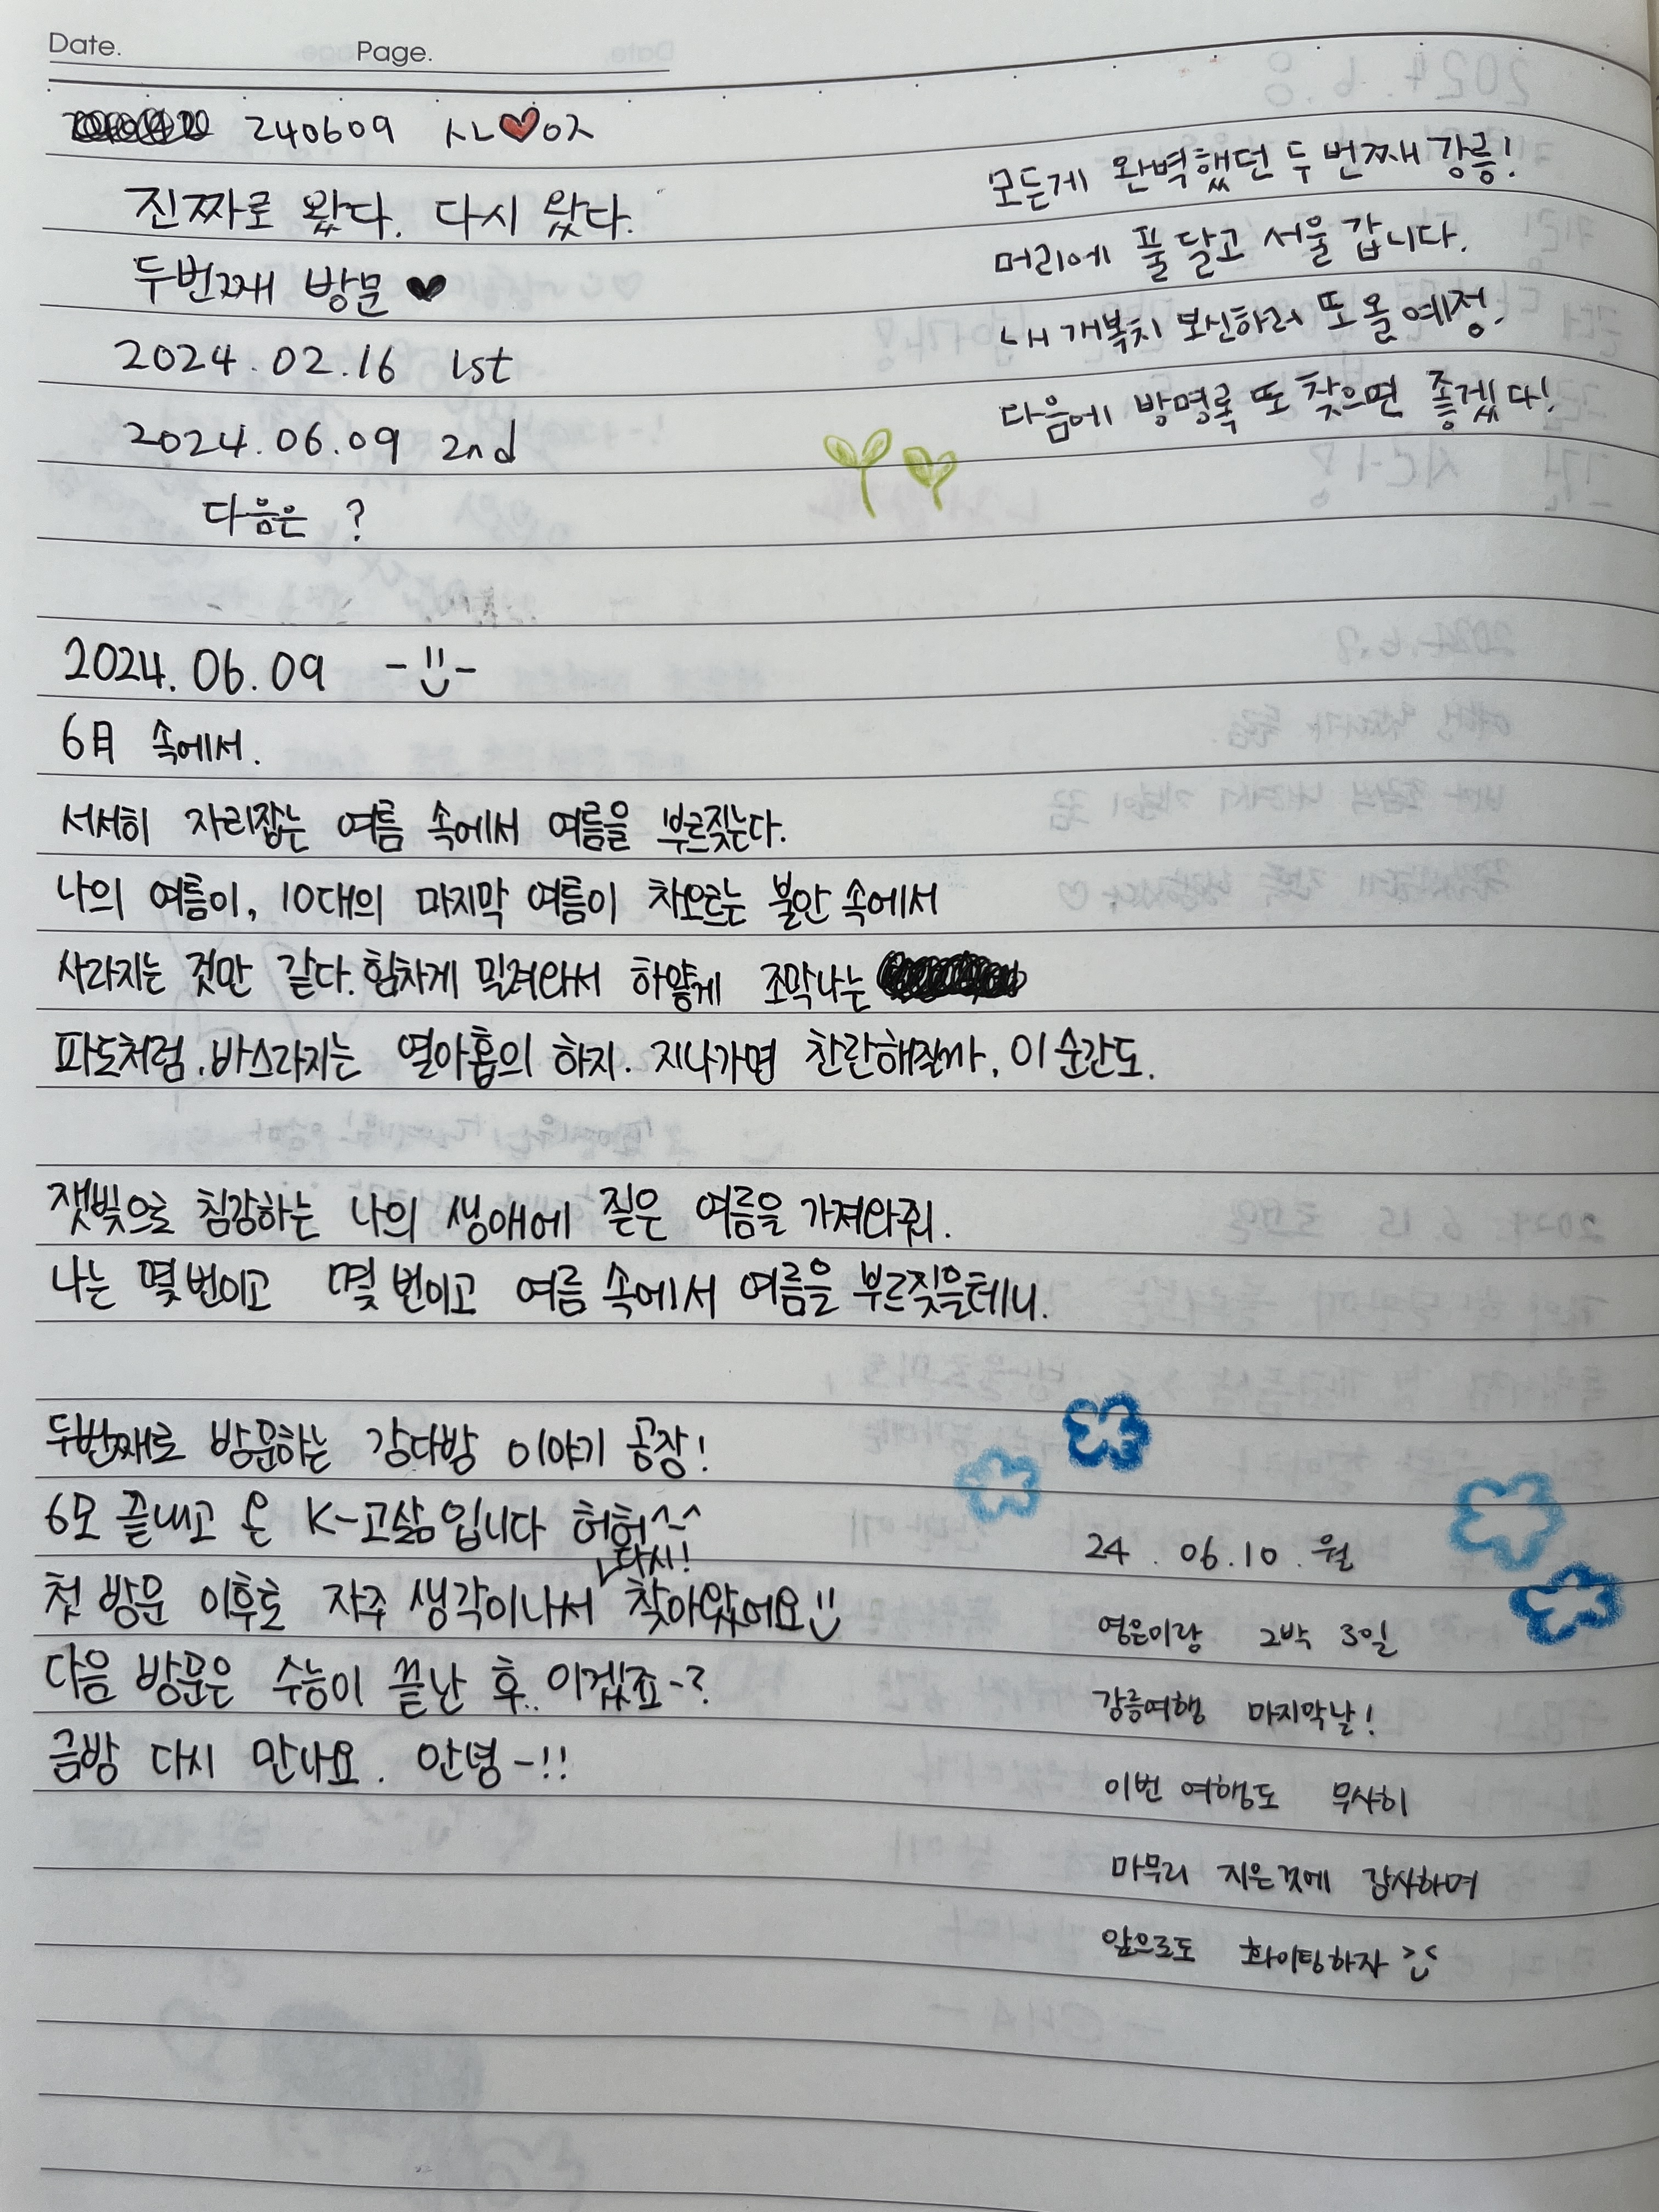 Date. Page.
240609 ㅅㄴ♥ㅇㅈ
진짜로 왔다. 다시 왔다.
두번째 방문 ♥
2024.02.16 1st
2024.06.09 2nd
다음은 ?
모든게 완벽했던 두 번째 강릉!
머리에 풀 달고 서울 갑니다.
내 개복치 보신하러 또 올 예정.
다음에 방명록 또 찾으면 좋겠다!
2024.06.09
6月 속에서.
서서히 자리잡는 여름 속에서 여름을 부르짖는다.
나의 여름이, 10대의 마지막 여름이 차오르는 불안 속에서
사라지는 것만 같다. 힘차게 밀려와서 하얗게 조각나는
파도처럼. 바스라지는 열아홉의 하지. 지나가면 찬란해질까, 이 순간도.
잿빛으로 침강하는 나의 생애에 짙은 여름을 가져와줘.
나는 몇 번이고 몇 번이고 여름 속에서 여름을 부르짖을테니.
두번째로 방문하는 강다방 이야기 공장!
6모 끝내고 온 K-고삶입니다 허헣^-^
다시!
첫 방문 이후로 자주 생각이나서 찾아왔어요
다음 방문은 수능이 끝난 후.. 이겠죠-?
금방 다시 만나요. 안녕-!!
24. 06.10. 월
영은이랑 2박 3일
강릉여행 마지막날!
이번 여행도 무사히
마무리 지은것에 감사하며
앞으로도 화이팅하자